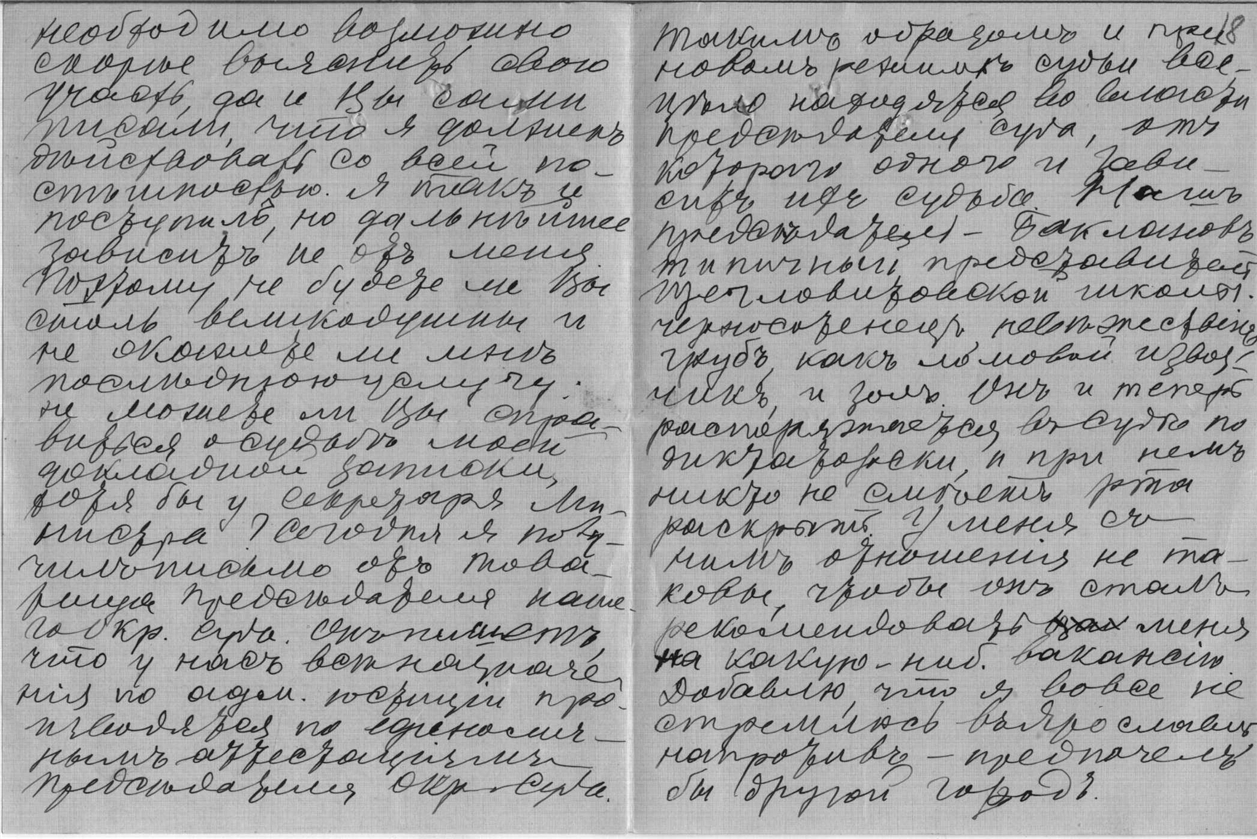 необходимо возможно
скорѣе выяснить свою
участь, да и Вы сами
писали, что я долженъ
дѣйствовать со всей по-
спѣшностью. Я такъ и
поступилъ, но дальнѣйшее
зависитъ не отъ меня.
Поэтому не будете ли Вы
столь великодушны и
не окажете ли мнѣ
послѣднюю услугу:
не можете ли Вы спра-
виться о судьбѣ моей
докладной записки,
хотя бы у секретаря Ми-
нистра? Сегодня я полу-
чилъ письмо отъ това-
рища предсѣдателя наше-
го Окр. Суда. Онъ пишетъ,
что у насъ всѣ назначе-
нія по адм. юстиціи про-
изводятся по единолич-
нымъ аттестаціямъ
предсѣдателя Окр. Суда.
18
такимъ образомъ и при
новомъ режимѣ судьи все-
цѣло находятся во власти
предсѣдателя суда, отъ
котораго одного и зави-
ситъ ихъ судьба. Нашъ
предсѣдатель – Баклановъ
типичный представитель
Щегловитовской школы:
черносотенецъ, невѣжественъ,
грубъ, какъ ломовой извоз-
чикъ, и золъ. Онъ и теперь
распоряжается въ судѣ по
диктаторски, и при немъ
никто не смѣетъ рта
раскрыть. У меня съ
нимъ отношенія не та-
ковы, чтобы онъ сталъ
рекомендовать меня
на какую-ниб. вакансію.
Добавлю, что я вовсе не
стремлюсь въ Ярославль
напротивъ – предпочелъ
бы другой городъ.